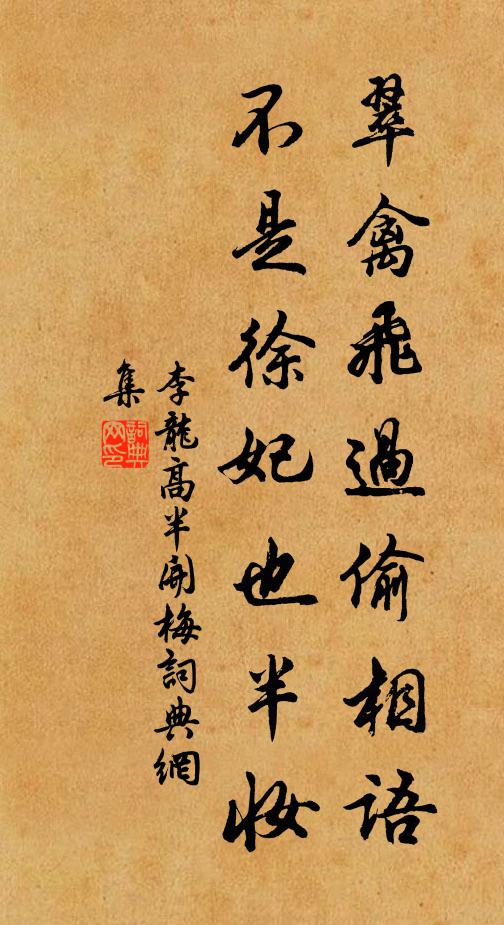 翠禽飛過偷相語
不是徐妃也半妝
李龍高半開梅詞典網
集
詞典
网印